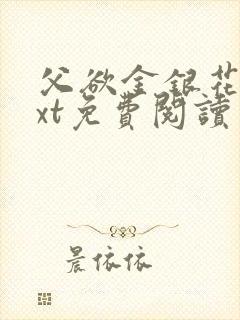 父欲金銀花
xt免費閱讀
晨依依